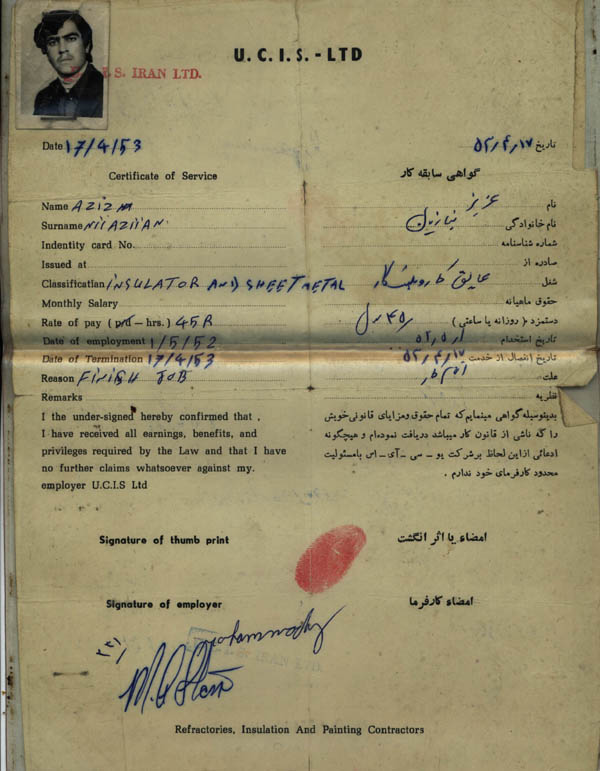 U. C. I. S. - LTD
S. IRAN LTD.
Date 17/4/53
تاریخ ۵۳/۴/۱۷
Certificate of Service
گواهی سابقه کار
Name AZIZ
نام عزیز
Surname NIIAZIIAN
نام خانوادگی نیازیان
Indentity card No.
شماره شناسنامه
Issued at
صادره از
Classification INSULATOR AND SHEET METAL
شغل عایق کار و
Monthly Salary
حقوق ماهیانه
Rate of pay ( – hrs.) 45R
دستمزد ( روزانه یا ساعتی ) ۴۵ ریال
Date of employment 1/5/52
تاریخ استخدام ۵۲/۵/۱
Date of Termination 17/4/53
تاریخ انفصال از خدمت ۵۳/۴/۱۷
Reason FINISH JOB
علت اتمام کار
Remarks
نظریه
I the under-signed hereby confirmed that .
I have received all earnings, benefits, and
privileges required by the Law and that I have
no further claims whatsoever against my.
employer U.C.I.S Ltd
بدینوسیله گواهی مینمایم که تمام حقوق ومزایای قانونی خویش
را که ناشی از قانون کار میباشد دریافت نموده‌ام و هیچگونه
ادعائی از این لحاظ بر شرکت یو - سی - آی - اس با مسئولیت
محدود کارفرمای خود ندارم .
Signature of thumb print
امضاء یا اثر انگشت
Signature of employer
امضاء کارفرما
IRAN LTD.
Refractories, Insulation And Painting Contractors